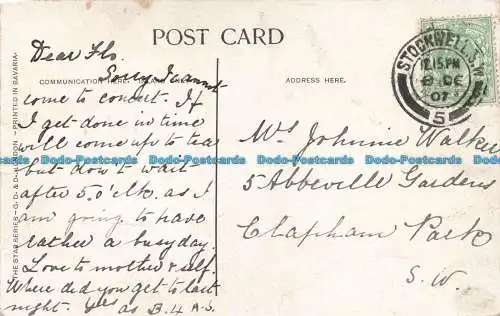 POST CARD
COMMUNICATION HERE.
ADDRESS HERE.
THE STAR SERIES - G. D. & D., LONDON - PRINTED IN BAVARIA
Dear Flo.
Sorry I cannot
come to concert. If
I get done in time
will come up to tea
but don't wait
after 5.o'clk. as I
am going to have
rather a busy day.
Love to mother & self.
Where did you get to last
night. Yrs as B.4 A.S.
STOCKWELL S.W.
12.15PM
DE
07
5
Mrs Johnnie Walker
5 Abbeville Gardens
Clapham Park
S.W.